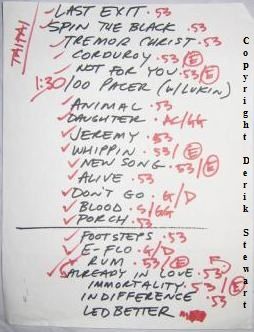 TAIPAI
LAST EXIT · 53
SPIN THE BLACK · 53
TREMOR CHRIST · 53
CORDUROY · 53/E
NOT FOR YOU · 53/E
1:30/00 PACER (W/LUKIN)
ANIMAL · 53
DAUGHTER · AC/GG
JEREMY · 53
WHIPPIN · 53/E
NEW SONG · 53/E
ALIVE · 53
DON'T GO · G/D
BLOOD · S/GG
PORCH · 53
FOOTSTEPS · 53
E-FLO · G/D
RUM · 53/E
ALREADY IN LOVE · 53
IMMORTALITY · 53/E
INDIFFERENCE · 53
LEDBETTER
Copyright Derik Stewart